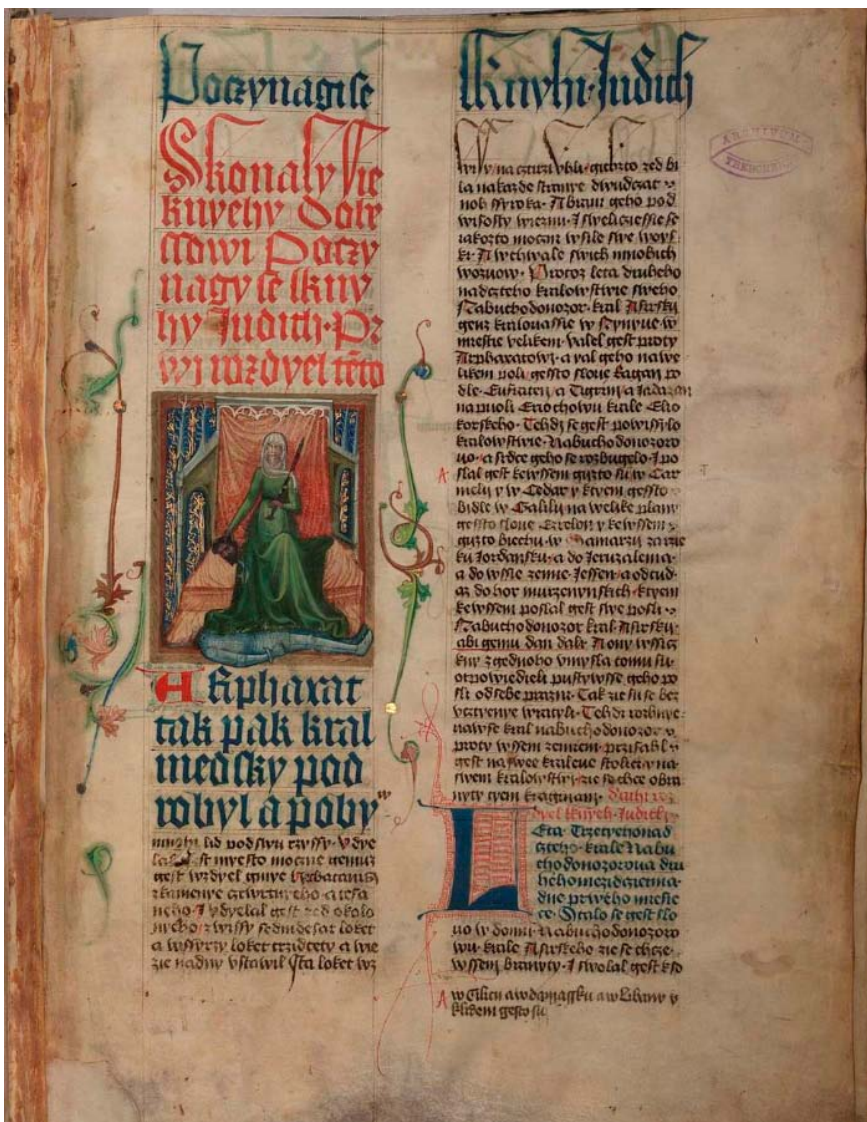 Poczynagise
Sknyhi Judich
Skonaly sie
knyehy Dole
ctowi Poczy
nagy se skny
hy Judich Pr
wj rozdyel teto
Arphaxat
tak pak kral
medsky pod
robyl a poby
mnohi lid pod swu rzyssy. Vdye
lal gest myesto mocne gemuz
gest wzdyel gmye
zkamenye cztwrteho a tesa
neho. J vdyelal gest zed okolo
nyeho zwissy sedmdesat loket
a wssyrzy loket trzidcety a wie
zie nadny vstawil Sta loket wz
na cztwrzi vhli. gichzto zed bi
la nakazde stranye dwudczat
noh ssyroka. A brani geho pod
wisosty wiezni. J sweliczessie se
iakozto mocni wsile swe woys
ki. A wchwale swich mnohich
wozuow. Protoz leta druheho
nadczteho kralowstwie sweho
Nabuchodonozor. kral Asirsky
genz kralowassie w Nynyue w
miestie velikem. valel gest proty
Arphaxatowi. a yal geho nawe
likem poli. gessto slowe Ragau po
dle. Eufraten. a Tigrin. a Jadazan
napuoli Eriochowu krale Elio
korskeho. Tehdj se gest powissylo
kralowstwie. Nabuchodonozoro
uo. a srdce geho se rozbugelo. J po
slal gest kewssem gizto su w Car
meliu y w Cedar y ktyem gessto
bidle w Galilu na welike plany
gessto slowe Ezrelon y kewssem
gizto biechu w Samarzij za rzie
ku Jordansku. a do Jeruzalema.
a do wssie zemie Jessen. a odtud
az do hor murzenynskich. ktyem
kewssem poslal gest swe posly
Nabuchodonozor kral Asirsky.
abi gemu dan dali. A ony wssicz
kny zgednoho vmysla tomu su
otpowiedieli pustywsse geho po
sli odsebe prazni. Tak zie su se bez
vcztyenye wratyli. Tehdi rozhnye
nawse kral nabuchodonozor
proty wssem zemiem. przisahl
gest naswee kralowe stolici. y na
swem kralowstwy. zie se chce obra
nyty tyem kraginam. Druhi roz
dyel knyeh Judich
Leta Trzetyehonad
czteho. krale Nabu
chodonozorowa dru
hehomezidcziema.
dne prweho miesie
ce. Stalo se gest slo
uo w domu Nabuchodonozoro
wu krale Asirskeho zie se chcze.
wssem branyty. J swolal gest kso
A w Cilicij a w damassku a w Libanu y
klidem gesto su
ARCHIVUM
TRENCHEN